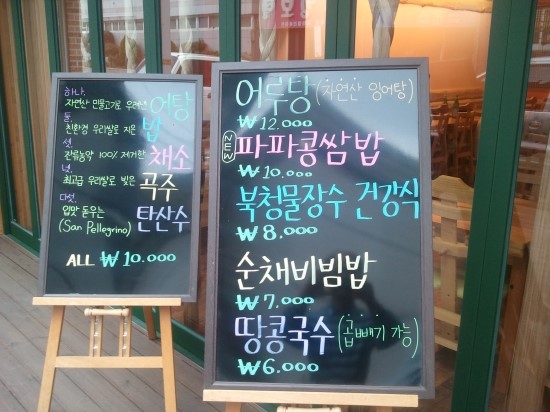 하나,
자연산 민물고기로 우려낸 어탕
둘,
친환경 우리쌀로 지은 밥
셋,
잔류농약 100% 제거한 채소
넷,
최고급 우리쌀로 빚은 곡주
다섯,
입맛 돋우는
(San Pellegrino) 탄산수
ALL ₩ 10.000
어루탕 (자연산 잉어탕)
₩ 12.000
NEW 파파콩쌈밥
₩ 10.000
북청물장수 건강식
₩ 8.000
순채비빔밥
₩ 7.000
땅콩국수 (곱빼기 가능)
₩ 6.000